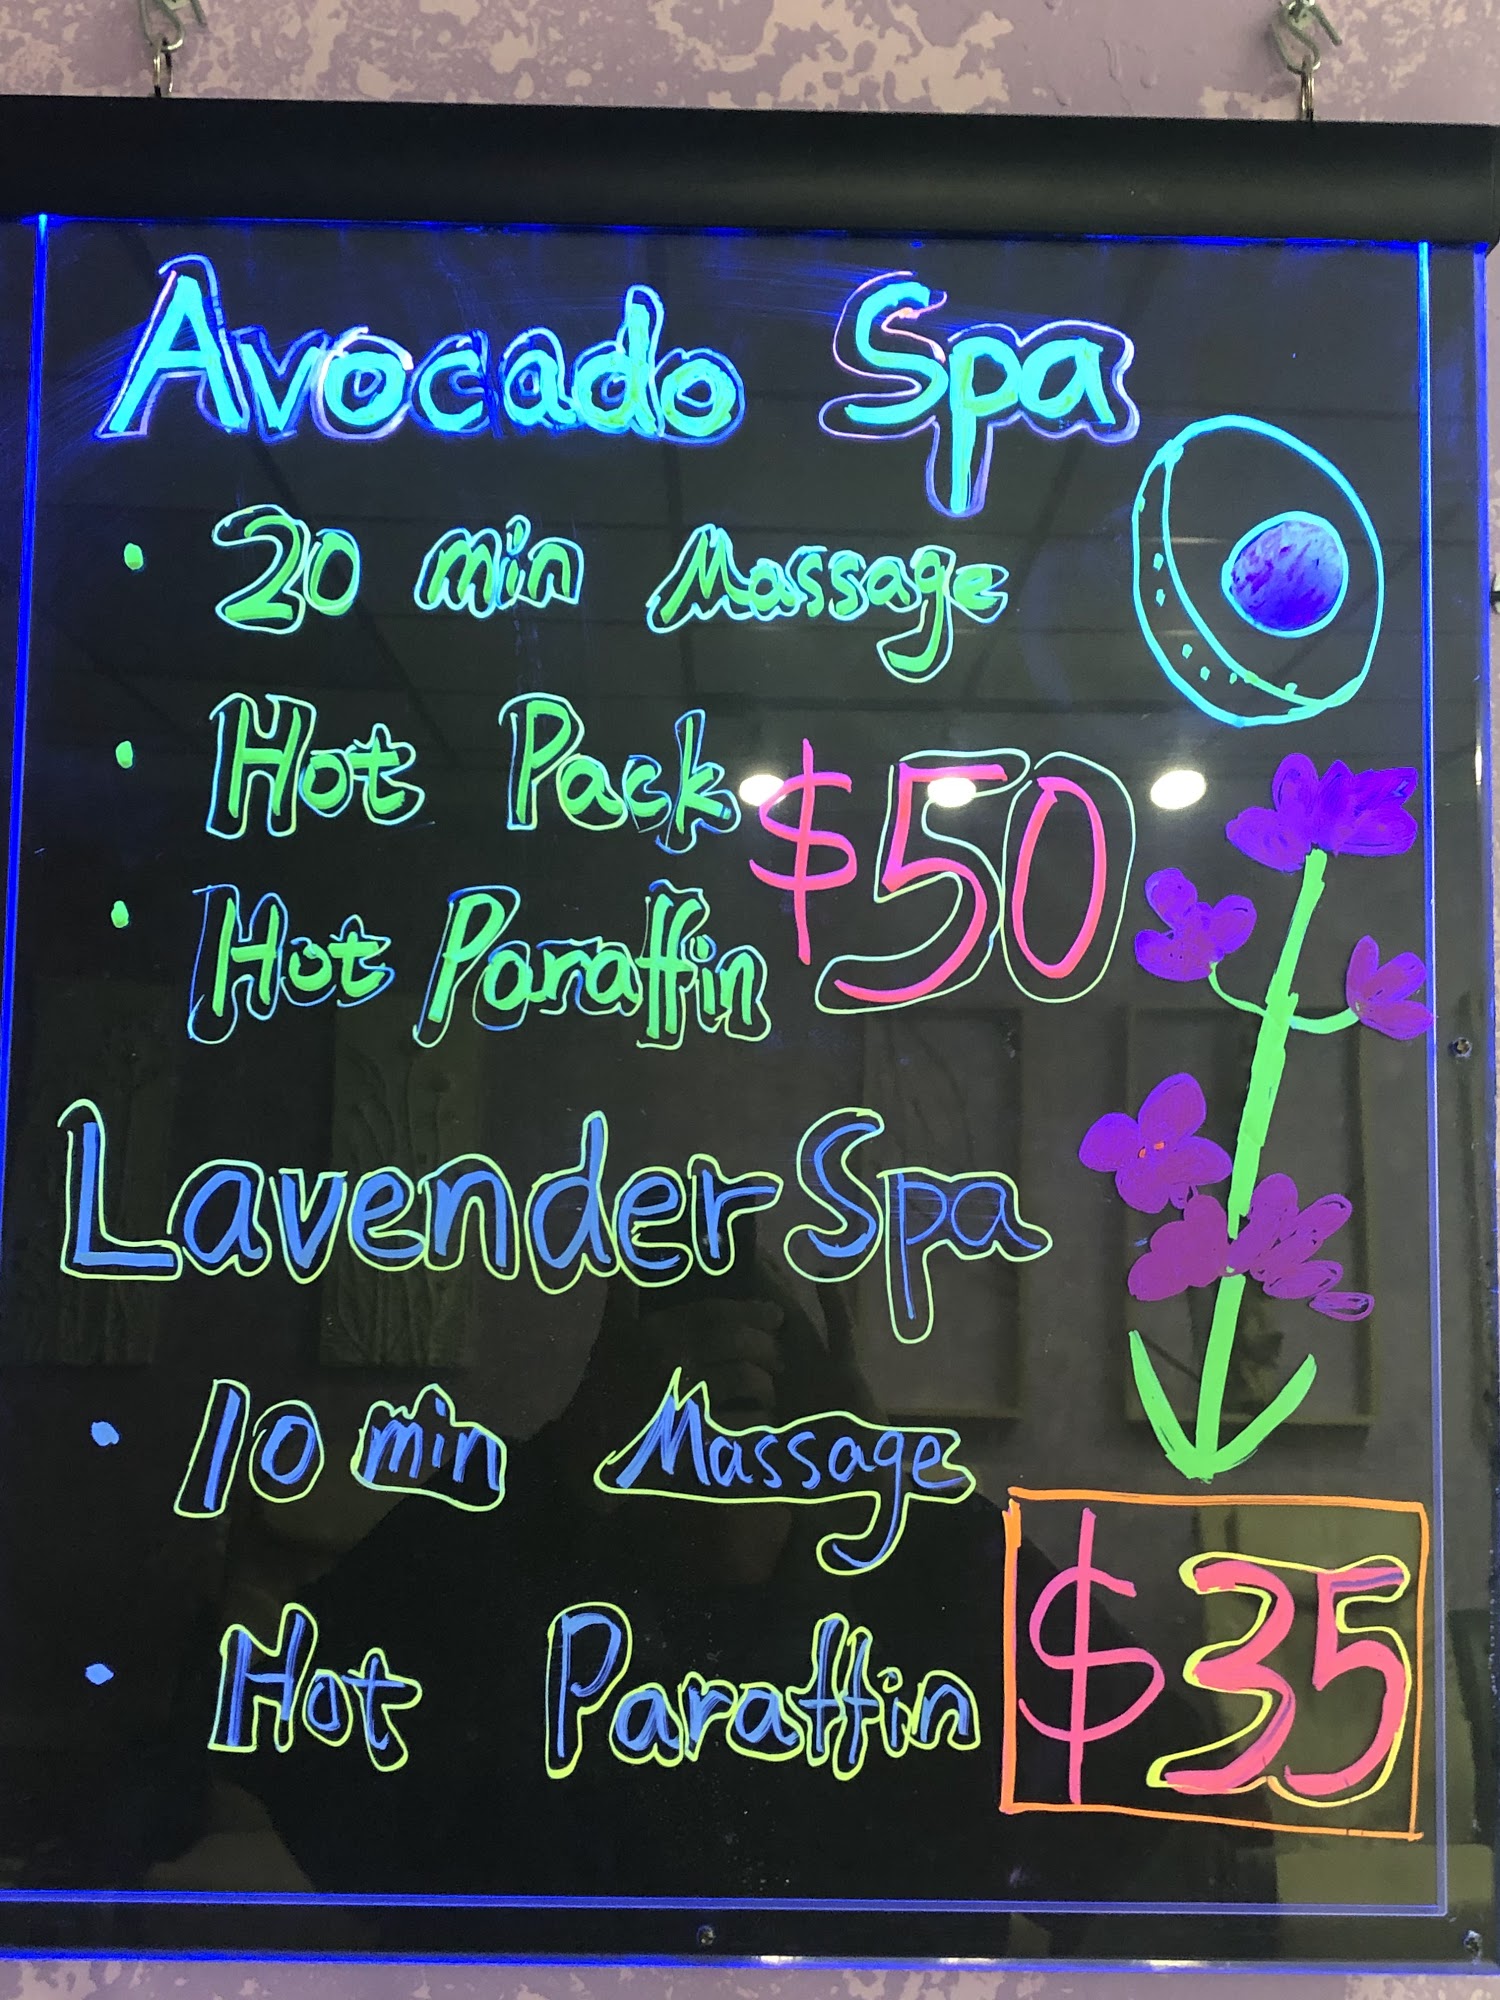 Avocado Spa
• 20 min Massage
• Hot Pack
$50
• Hot Paraffin
Lavender Spa
• 10 min Massage
• Hot Paraffin
$35